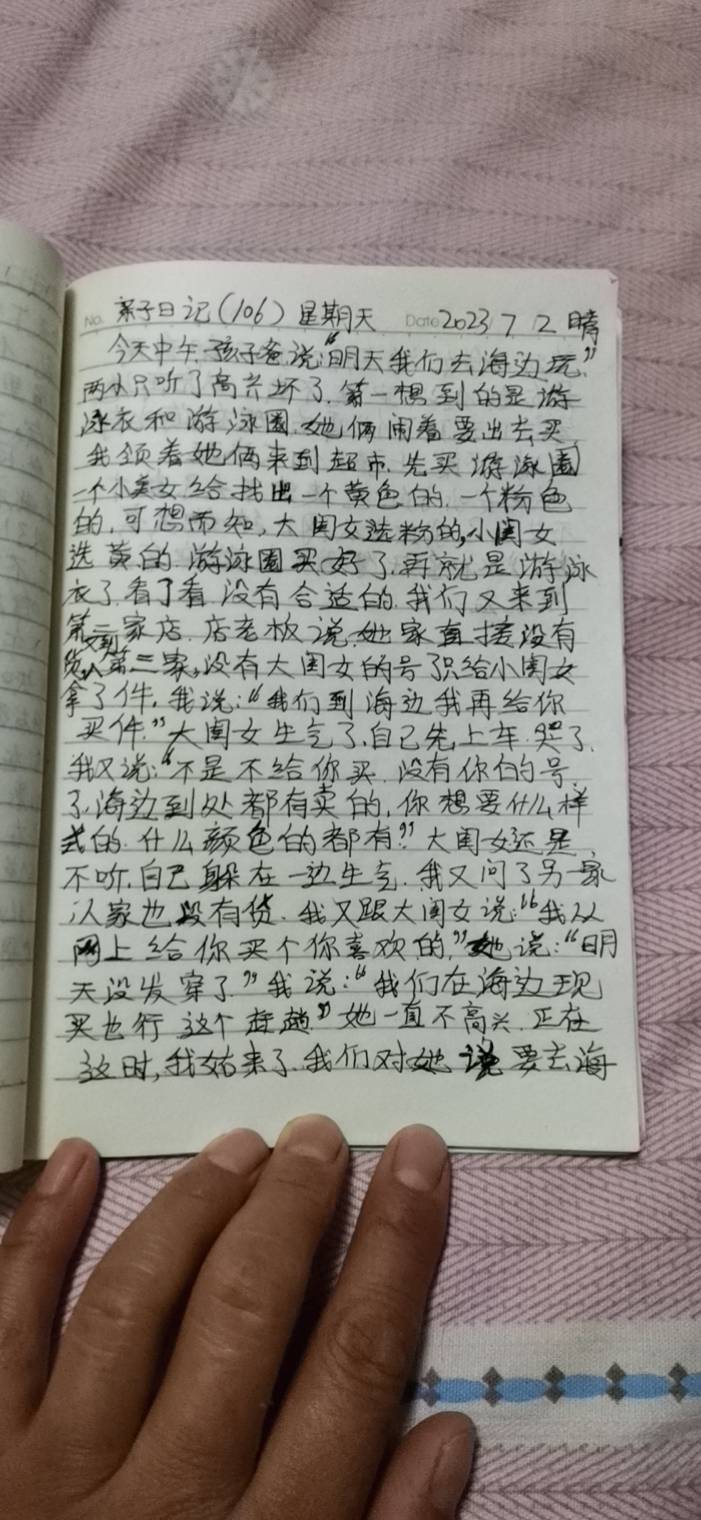 No. 亲子日记(106) 星期天 Date 2023 7 2 晴
今天中午,孩子爸说:“明天我们去海边玩。”
两小只听了高兴坏了.第一想到的是游
泳衣和游泳圈.她俩闹着要出去买,
我领着她俩来到超市.先买游泳圈
一个小美女给找出一个黄色的.一个粉色
的.可想而知,大闺女选粉的,小闺女
选黄的.游泳圈买好了.再就是游泳
衣了.看了看没有合适的.我们又来到
第二家店.店老板说.她家直接没有
货,又到第三家,没有大闺女的号了只给小闺女
拿了件.我说:“我们到海边我再给你
买件.”大闺女生气了.自己先上车.哭了.
我又说:“不是不给你买.没有你的号
了.海边到处都有卖的.你想要什么样
式的.什么颜色的都有.”大闺女还是
不听.自己躲在一边生气.我又问了另一家
人家也没有货.我又跟大闺女说:“我从
网上给你买个你喜欢的,”她说:“明
天没发穿了.”我说:“我们在海边现
买也行 这个赶趟.”她一直不高兴.正在
这时,我姑来了.我们对她说要去海